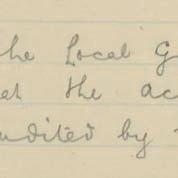 the Local G
et the ac
audited by